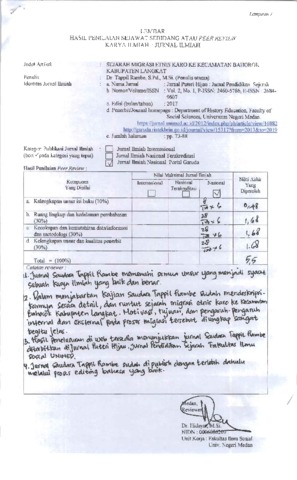 Lampiran
LEMBAR
HASIL PENILAIAN SEJAWAT SEBIDANG ATAU PEER REVIEW
KARYA ILMIAH : JURNAL ILMIAH
Judul Artikel : SEJARAH MIGRASI ETNIS KARO KE KECAMATAN BAHOROK KABUPATEN LANGKAT
Penulis : Dr. Tappil Rambe, S.Pd., M.Si.
Identitas Jurnal Ilmiah : a. Nama Jurnal : Jurnal Puteri Hijau : Jurnal Pendidikan Sejarah
b. Nomor/Volume/ISSN : Vol. 2, No. 1, P-ISSN: 2460-5786, E-ISSN:
c. Edisi (bulan/tahun) : 2017
: Department of History Education, Faculty of Social Sciences, Universitas Negeri Medan
e. Jumlah halaman : pp. 73-88
Kategori Publikasi Jurnal Ilmiah
Jurnal Ilmiah Internasional
Jurnal Ilmiah Nasional Terakreditasi
Jurnal Ilmiah Nasional
Hasil Penilaian Peer Review :
Komponen Yang Dinilai
Nilai Maksimal Jurnal Ilmiah
Internasional
Nasional Terakreditasi
Nasional
Nilai Akhir Yang Diperoleh
a. Kelengkapan unsur isi buku (10%)
b. Ruang lingkup dan kedalaman pembahasan (30%)
1,68
c. Kecukupan dan kemutahiran data/informasi dan metodologi (30%)
1,68
d. Kelengkapan unsur dan kualitas penerbit (30%)
1.68
Total = (100%)
Catatan reviewer
1. Jurnal Saudara Tappil Rambe memenuhi semua unsur yang menjadi syarat sebuah karya ilmiah yang baik dan benar.
2. Dalam menjabarkan kajian Saudara Tappil Rambe sudah mendeskripsikannya secara detail, dan runtut sejarah migrasi etnis karo ke Kecamatan Bahorok Kabupaten Langkat. Motivasi, tujuan, dan pengaruh-pengaruh internal dan eksternal pada proses migrasi tersebut
3. Hasil penelusuran di web tersedia menunjukkan jurnal Saudara Tappil Rambe diterbitkan di Jurnal Puteri Hijau, Jurnal Pendidikan Sejarah, Fakultas Ilmu Sosial Unimed.
4. Jurnal Saudara Tappil Rambe sudah di publish dengan terlebih dahulu melalui proses editing bahasa yang baik.
Medan,
Reviewer
Unit Kerja : Fakultas Ilmu Sosial
Univ. Negeri Medan